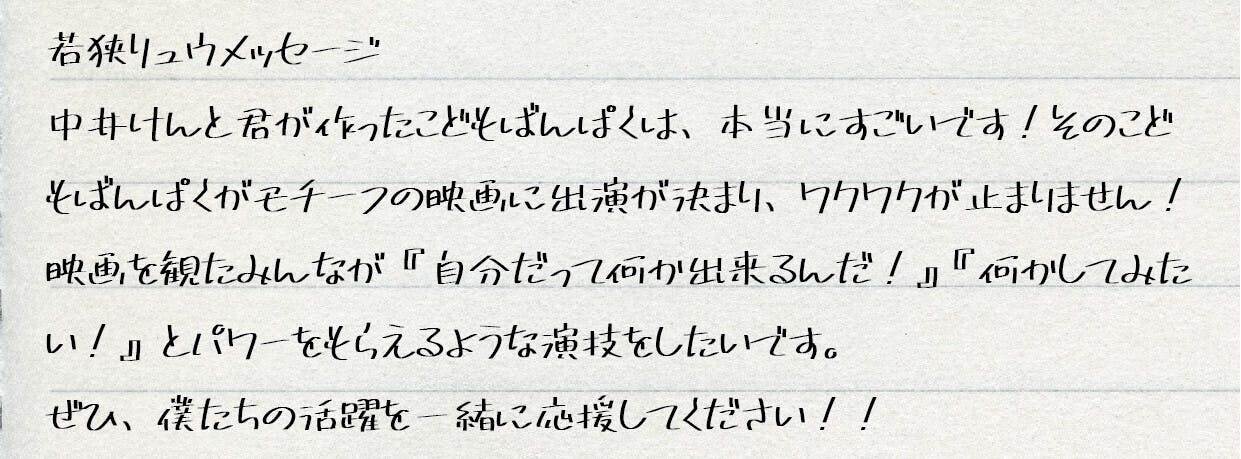 若狭リュウメッセージ
中井けんと君が作ったこどもばんぱくは、本当にすごいです！そのこど
もばんぱくがモチーフの映画に出演が決まり、ワクワクが止まりません！
映画を観たみんなが『自分だって何か出来るんだ！』『何かしてみた
い！』とパワーをもらえるような演技をしたいです。
ぜひ、僕たちの活躍を一緒に応援してください！！